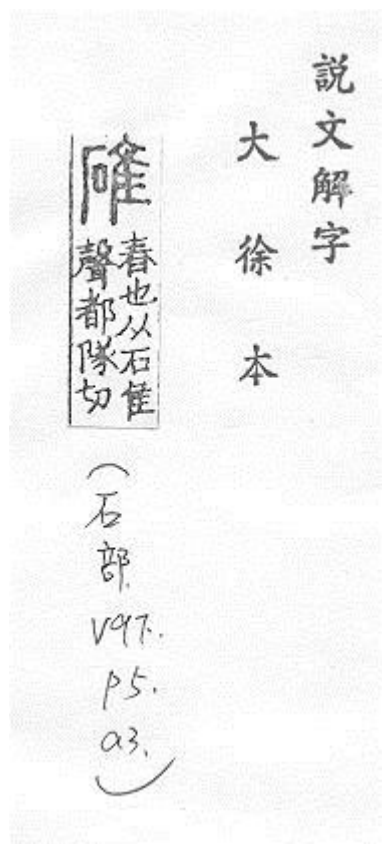 説文解字
大徐本
碓
舂也从石隹
聲都隊切
(石部.V9下.P5.a3.)